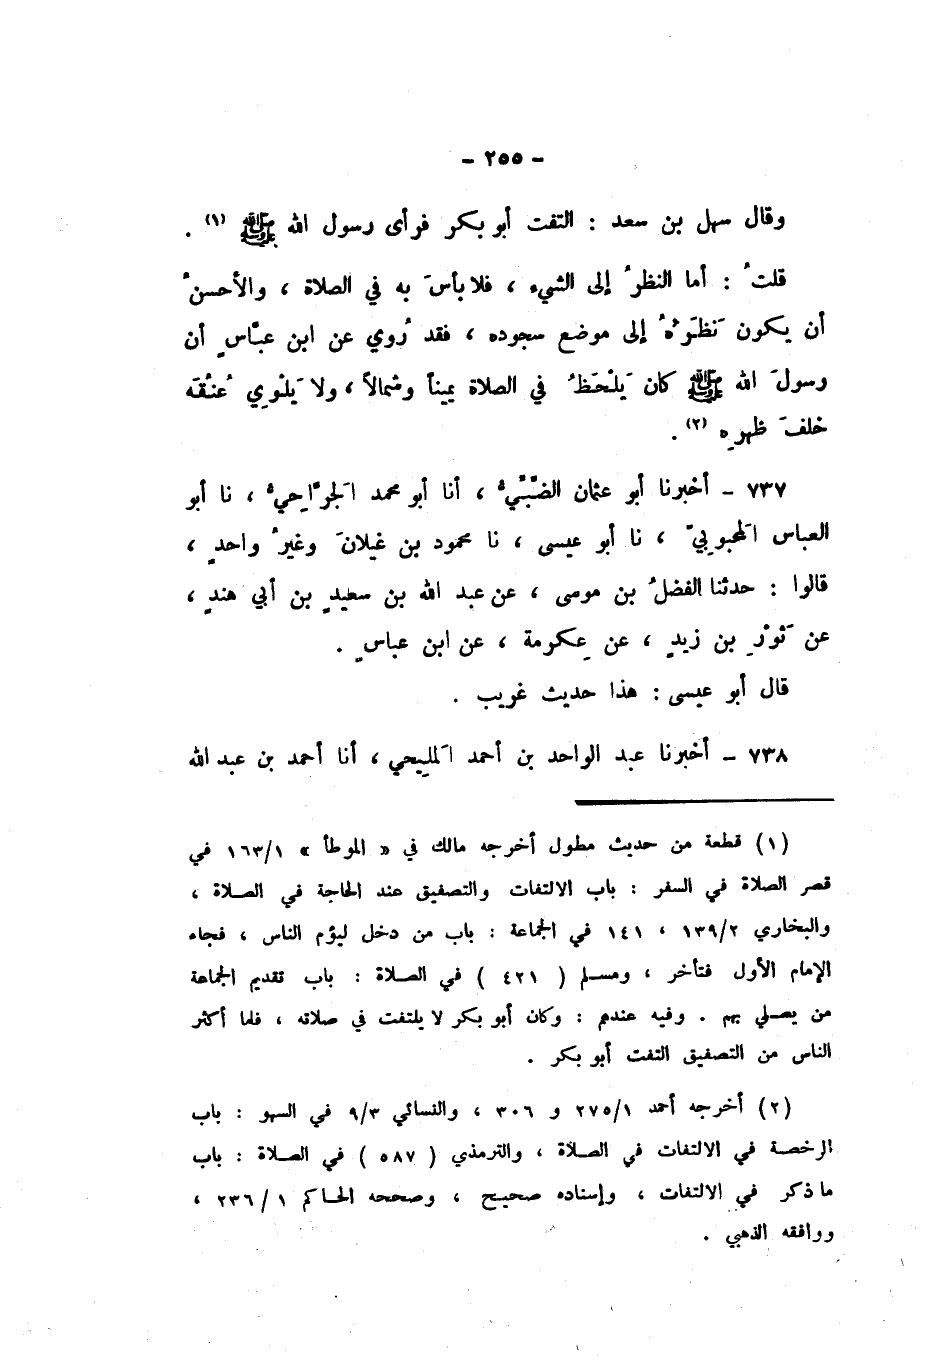 - ٢٥٥ -
وقال سهل بن سعد : التفت أبو بكر فرأى رسول الله ﷺ (١) .
قلتُ : أما النظرُ إلى الشيء ، فلا بأسَ به في الصلاة ، والأحسنُ
أن يكون نَظَرُهُ إلى موضع سجوده ، فقد رُوي عن ابن عبَّاسٍ أن
رسولَ الله ﷺ كان يَلْحَظُ في الصلاة يميناً وشمالاً ، ولا يَلْوِي عُنُقَه
خلفَ ظهرِه (٢) .
٧٣٧ - أخبرنا أبو عثمان الضَّبِّيُّ ، أنا أبو محمد الجَرَّاحِيُّ ، نا أبو
العباس المَحبوبيّ ، نا أبو عيسى ، نا محمود بن غيلانَ وغيرُ واحدٍ ،
قالوا : حدثنا الفضلُ بن موسى ، عن عبد الله بن سعيدٍ بن أبي هندٍ ،
عن ثَوْرِ بن زيدٍ ، عن عِكرمة ، عن ابن عباسٍ .
قال أبو عيسى : هذا حديث غريب .
٧٣٨ - أخبرنا عبد الواحد بن أحمد المَلِيحي ، أنا أحمد بن عبد الله
(١) قطعة من حديث مطول أخرجه مالك في « الموطأ » ١٦٣/١ في
قصر الصلاة في السفر : باب الالتفات والتصفيق عند الحاجة في الصلاة ،
والبخاري ١٣٩/٢ ، ١٤١ في الجماعة : باب من دخل ليؤم الناس ، فجاء
الإمام الأول فتأخر ، ومسلم ( ٤٢١ ) في الصلاة : باب تقديم الجماعة
من يصلي بهم . وفيه عندهم : وكان أبو بكر لا يلتفت في صلاته ، فلما أكثر
الناس من التصفيق التفت أبو بكر .
(٢) أخرجه أحمد ٢٧٥/١ و ٣٠٦ ، والنسائي ٩/٣ في السهو : باب
الرخصة في الالتفات في الصلاة ، والترمذي ( ٥٨٧ ) في الصلاة : باب
ما ذكر في الالتفات ، وإسناده صحيح ، وصححه الحاكم ٢٣٦/١ ،
ووافقه الذهبي .